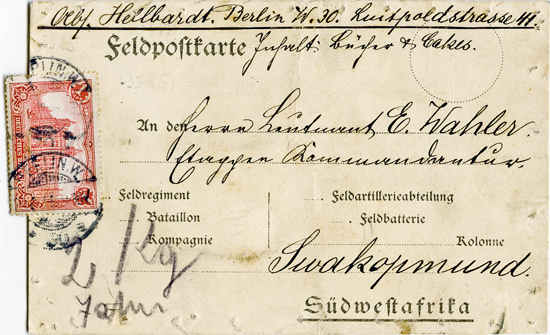 Abs. Heilbardt. Berlin W. 30. Luitpoldstrasse 41.
Feldpostkarte Inhalt: Bücher & Cakes.
An den Herrn Leutnant E. Wahler.
Etappen Kommandantur.
Feldregiment
Feldartillerieabteilung
Bataillon
Feldbatterie
Kompagnie
Kolonne
2 Kg
Swakopmund.
Südwestafrika
BERLIN W